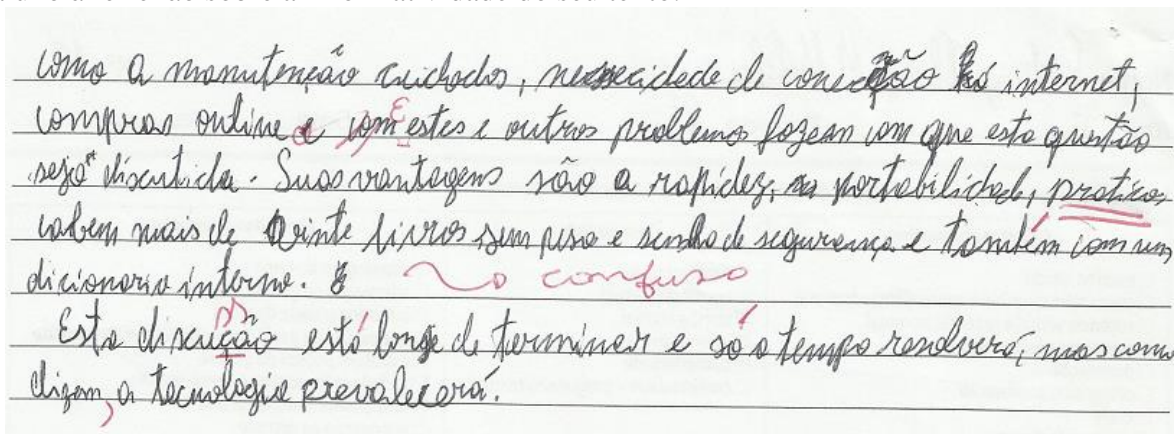 como a manutenção cuidados, necessecidede de conecção há internet,
compras online e com estes e outros problemas fazem com que esta questão
seja discutida. Suas vantagens são a rapidez, na portabilidade, pratico,
cabem mais de vinte livros sem peso e senha de segurança e também com um
dicionario interno.
confuso
Esta discução está longe de terminar e só o tempo resolverá, mas como
dizem, a tecnologia prevalecerá.